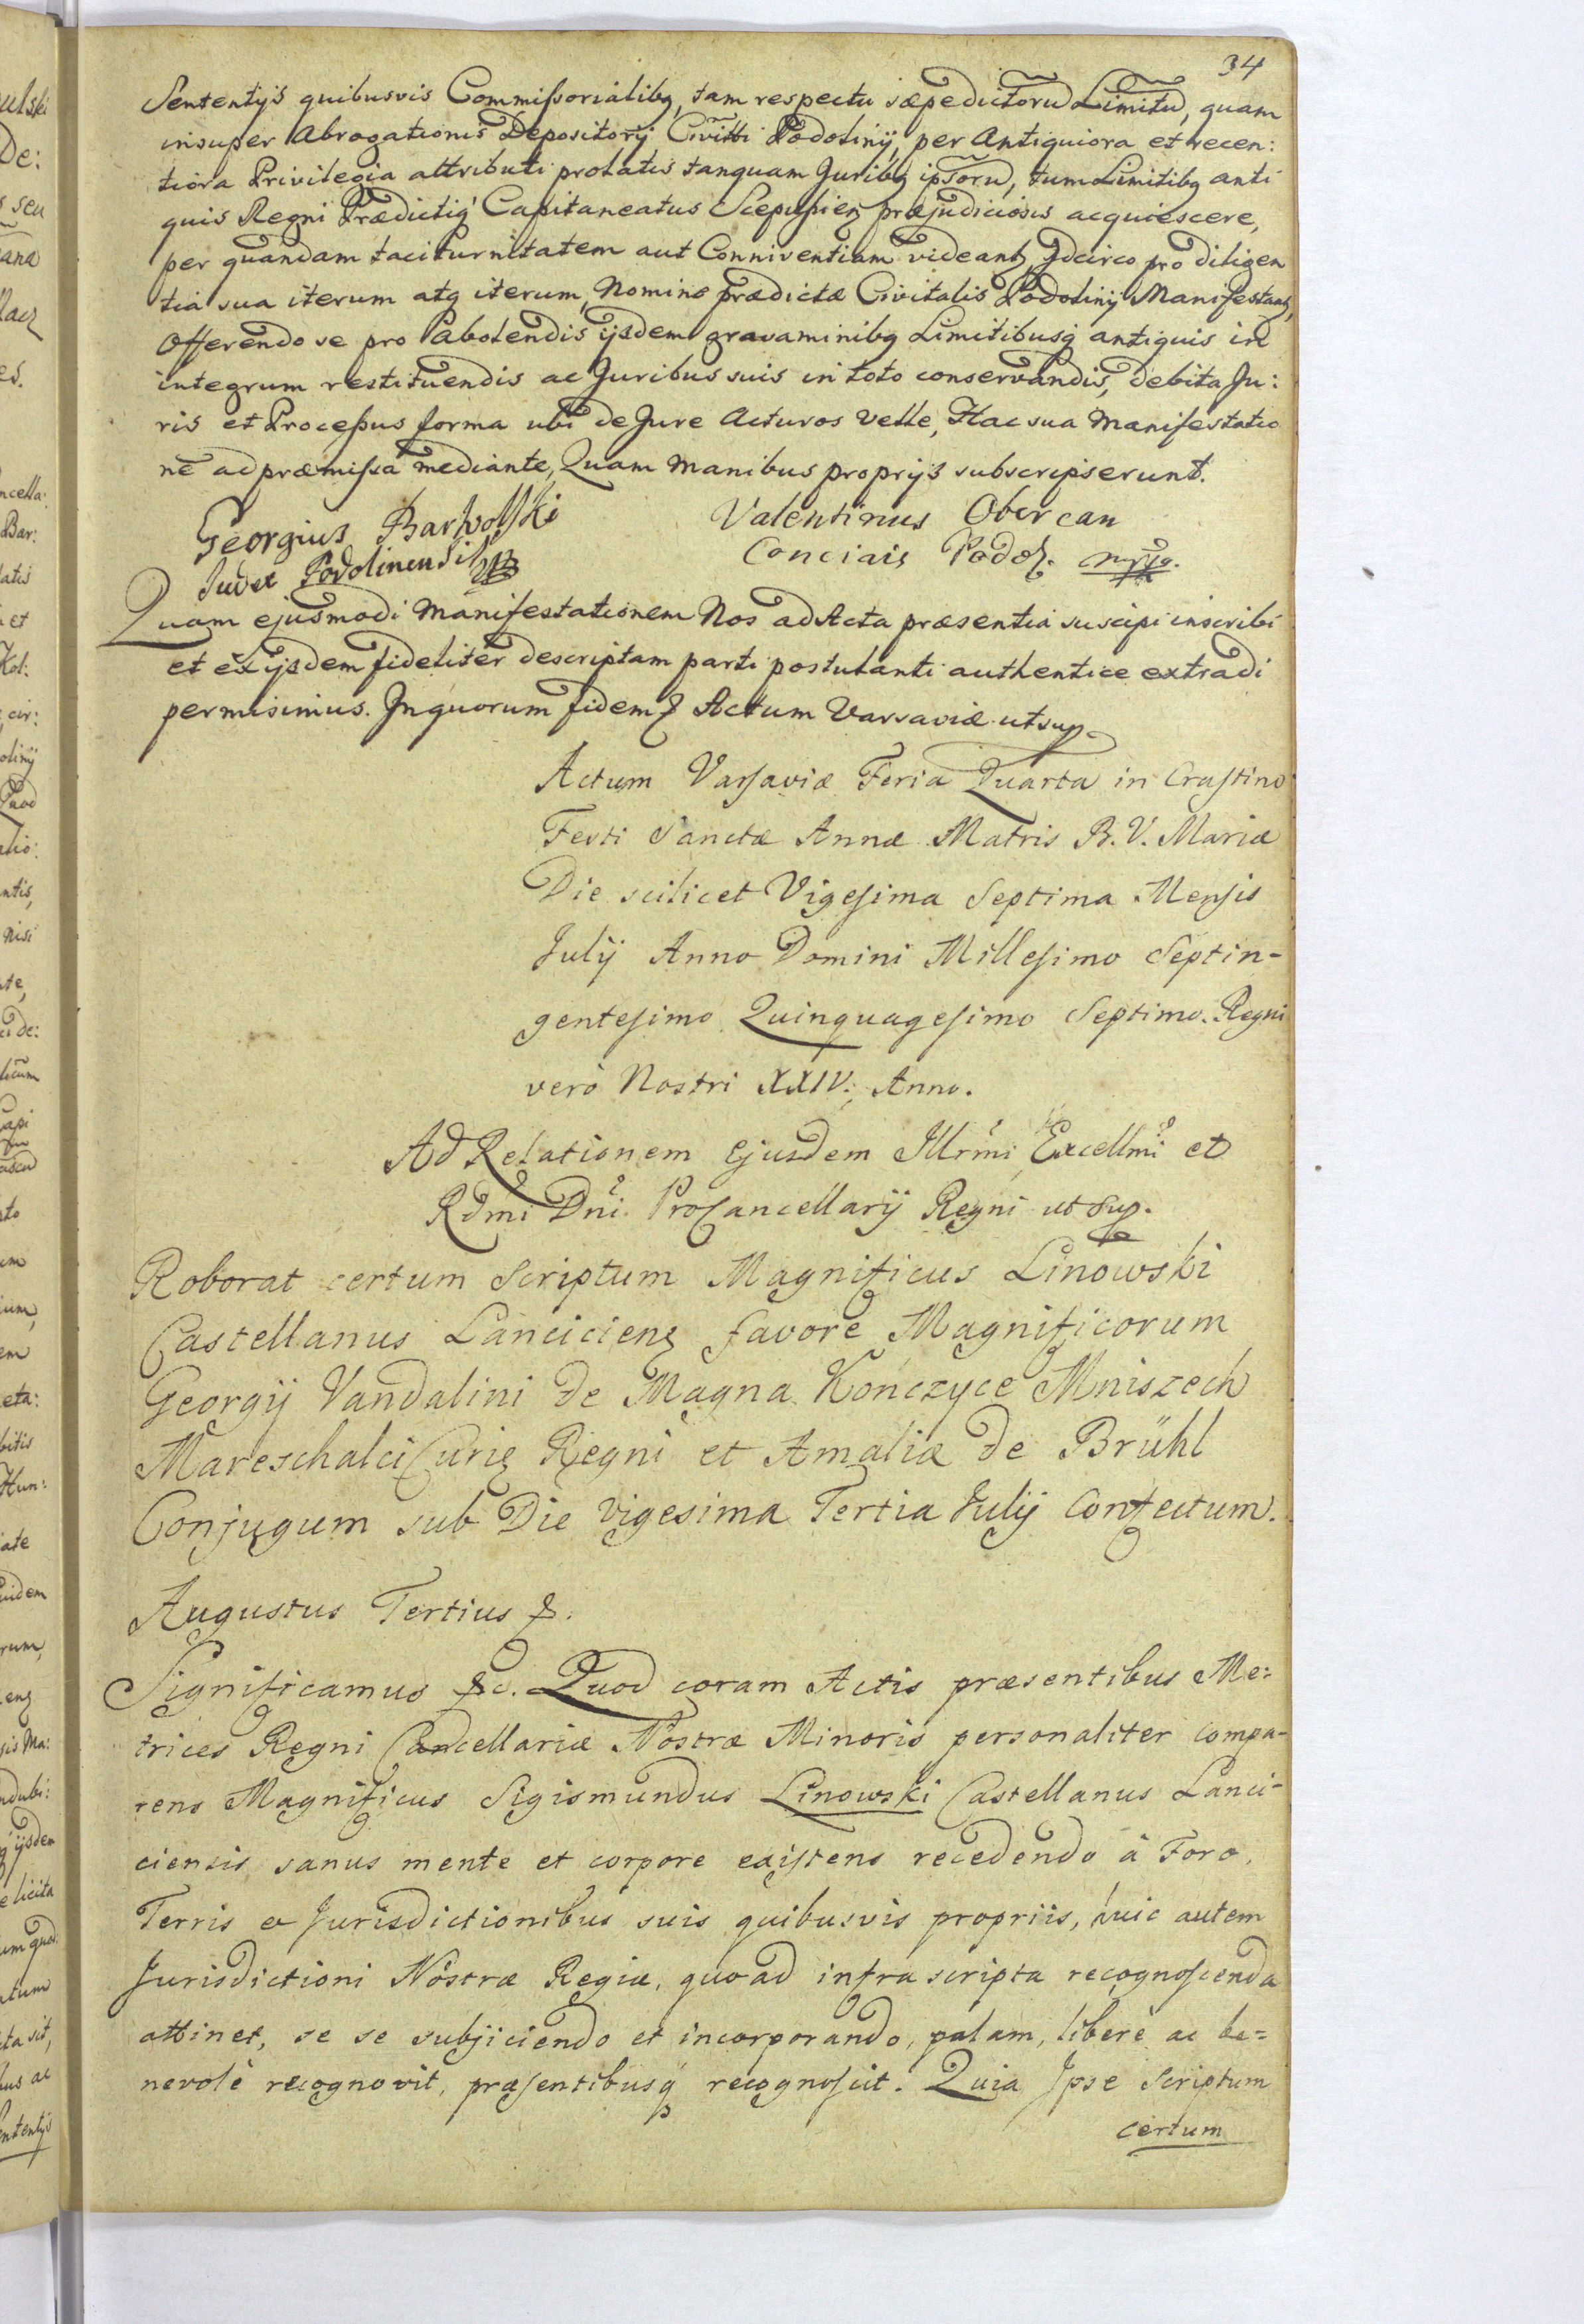 34
Sententijs quibusvis Commissorialibq, tam respectu sæpedictorũ Limitũ, quam
insuper Abrogationis Depositorij Civitti Podolinij, per Antiquiora et recen:
tiora Privilegia attributi prolatis tanquam Juribq ipsorũ, tum Limitibq anti
quis Regni Prædictiq Capitaneatus Scepusienz præjudiciosis acquiescere,
per quandam taciturnitatem aut Conniventiam videantz, Idcirco pro diligen
tia sua iterum atq iterum, Nomine prædictæ Civitatis Podolinij Manifestantz,
Offerendo se pro abolendis ijsdem gravaminibq Limitibusq antiquis in
integrum restituendis ac Juribus suis in toto conservandis, debita Ju:
ris et Processus forma ubi de Jure Acturos velle, Hac sua Manifestatio
ne ad præmissa mediante, Quam manibus proprijs subscripserunt.
Georgius Barwolski Valentinus Obercan
Judex Podolinensis Conciais Podol. mpp.
Quam ejusmodi Manifestationem Nos ad Acta præsentia suscipi inscribi
et ex ijsdem fideliter descriptam parti postulanti authentice extradi
permisimus. In quorum fidem & Actum Varsaviæ ut sup.
Actum Varsaviæ Feria Quarta in Crastino
Festi Sanctæ Annæ Matris B. V. Mariæ
Die scilicet Vigesima Septima Mensis
Julij Anno Domini Millesimo Septin-
gentesimo Quinquagesimo Septimo. Regni
verò Nostri XXIV. Anno.
Ad Relationem Ejusdem Illrmi Excellmi et
Rdmi Dni ProCancellarij Regni ut Sup.
Roborat certum Scriptum Magnificus Linowski
Castellanus Lancicienz favore Magnificorum
Georgij Vandalini de Magna Kończyce Mniszech
Mareschalci Curiæ Regni et Amaliæ de Brühl
Conjugum sub Die vigesima Tertia Julij Confectum.
Augustus Tertius &.
Significamus &c. Quod coram Actis præsentibus Me:
trices Regni Cancellariæ Nostræ Minoris personaliter compa-
rens Magnificus Sigismundus Linowski Castellanus Lanci-
ciensis sanus mente et corpore existens recedendo à Foro,
Terris & Jurisdictionibus suis quibusvis propriis, huic autem
Jurisdictioni Nostræ Regiæ, quoad infra scripta recognoscenda
attinet, se se subjiciendo et incorporando, palam, liberè ac be=
nevolè recognovit, præsentibusq recognoscit. Quia Ipse Scriptum
certum